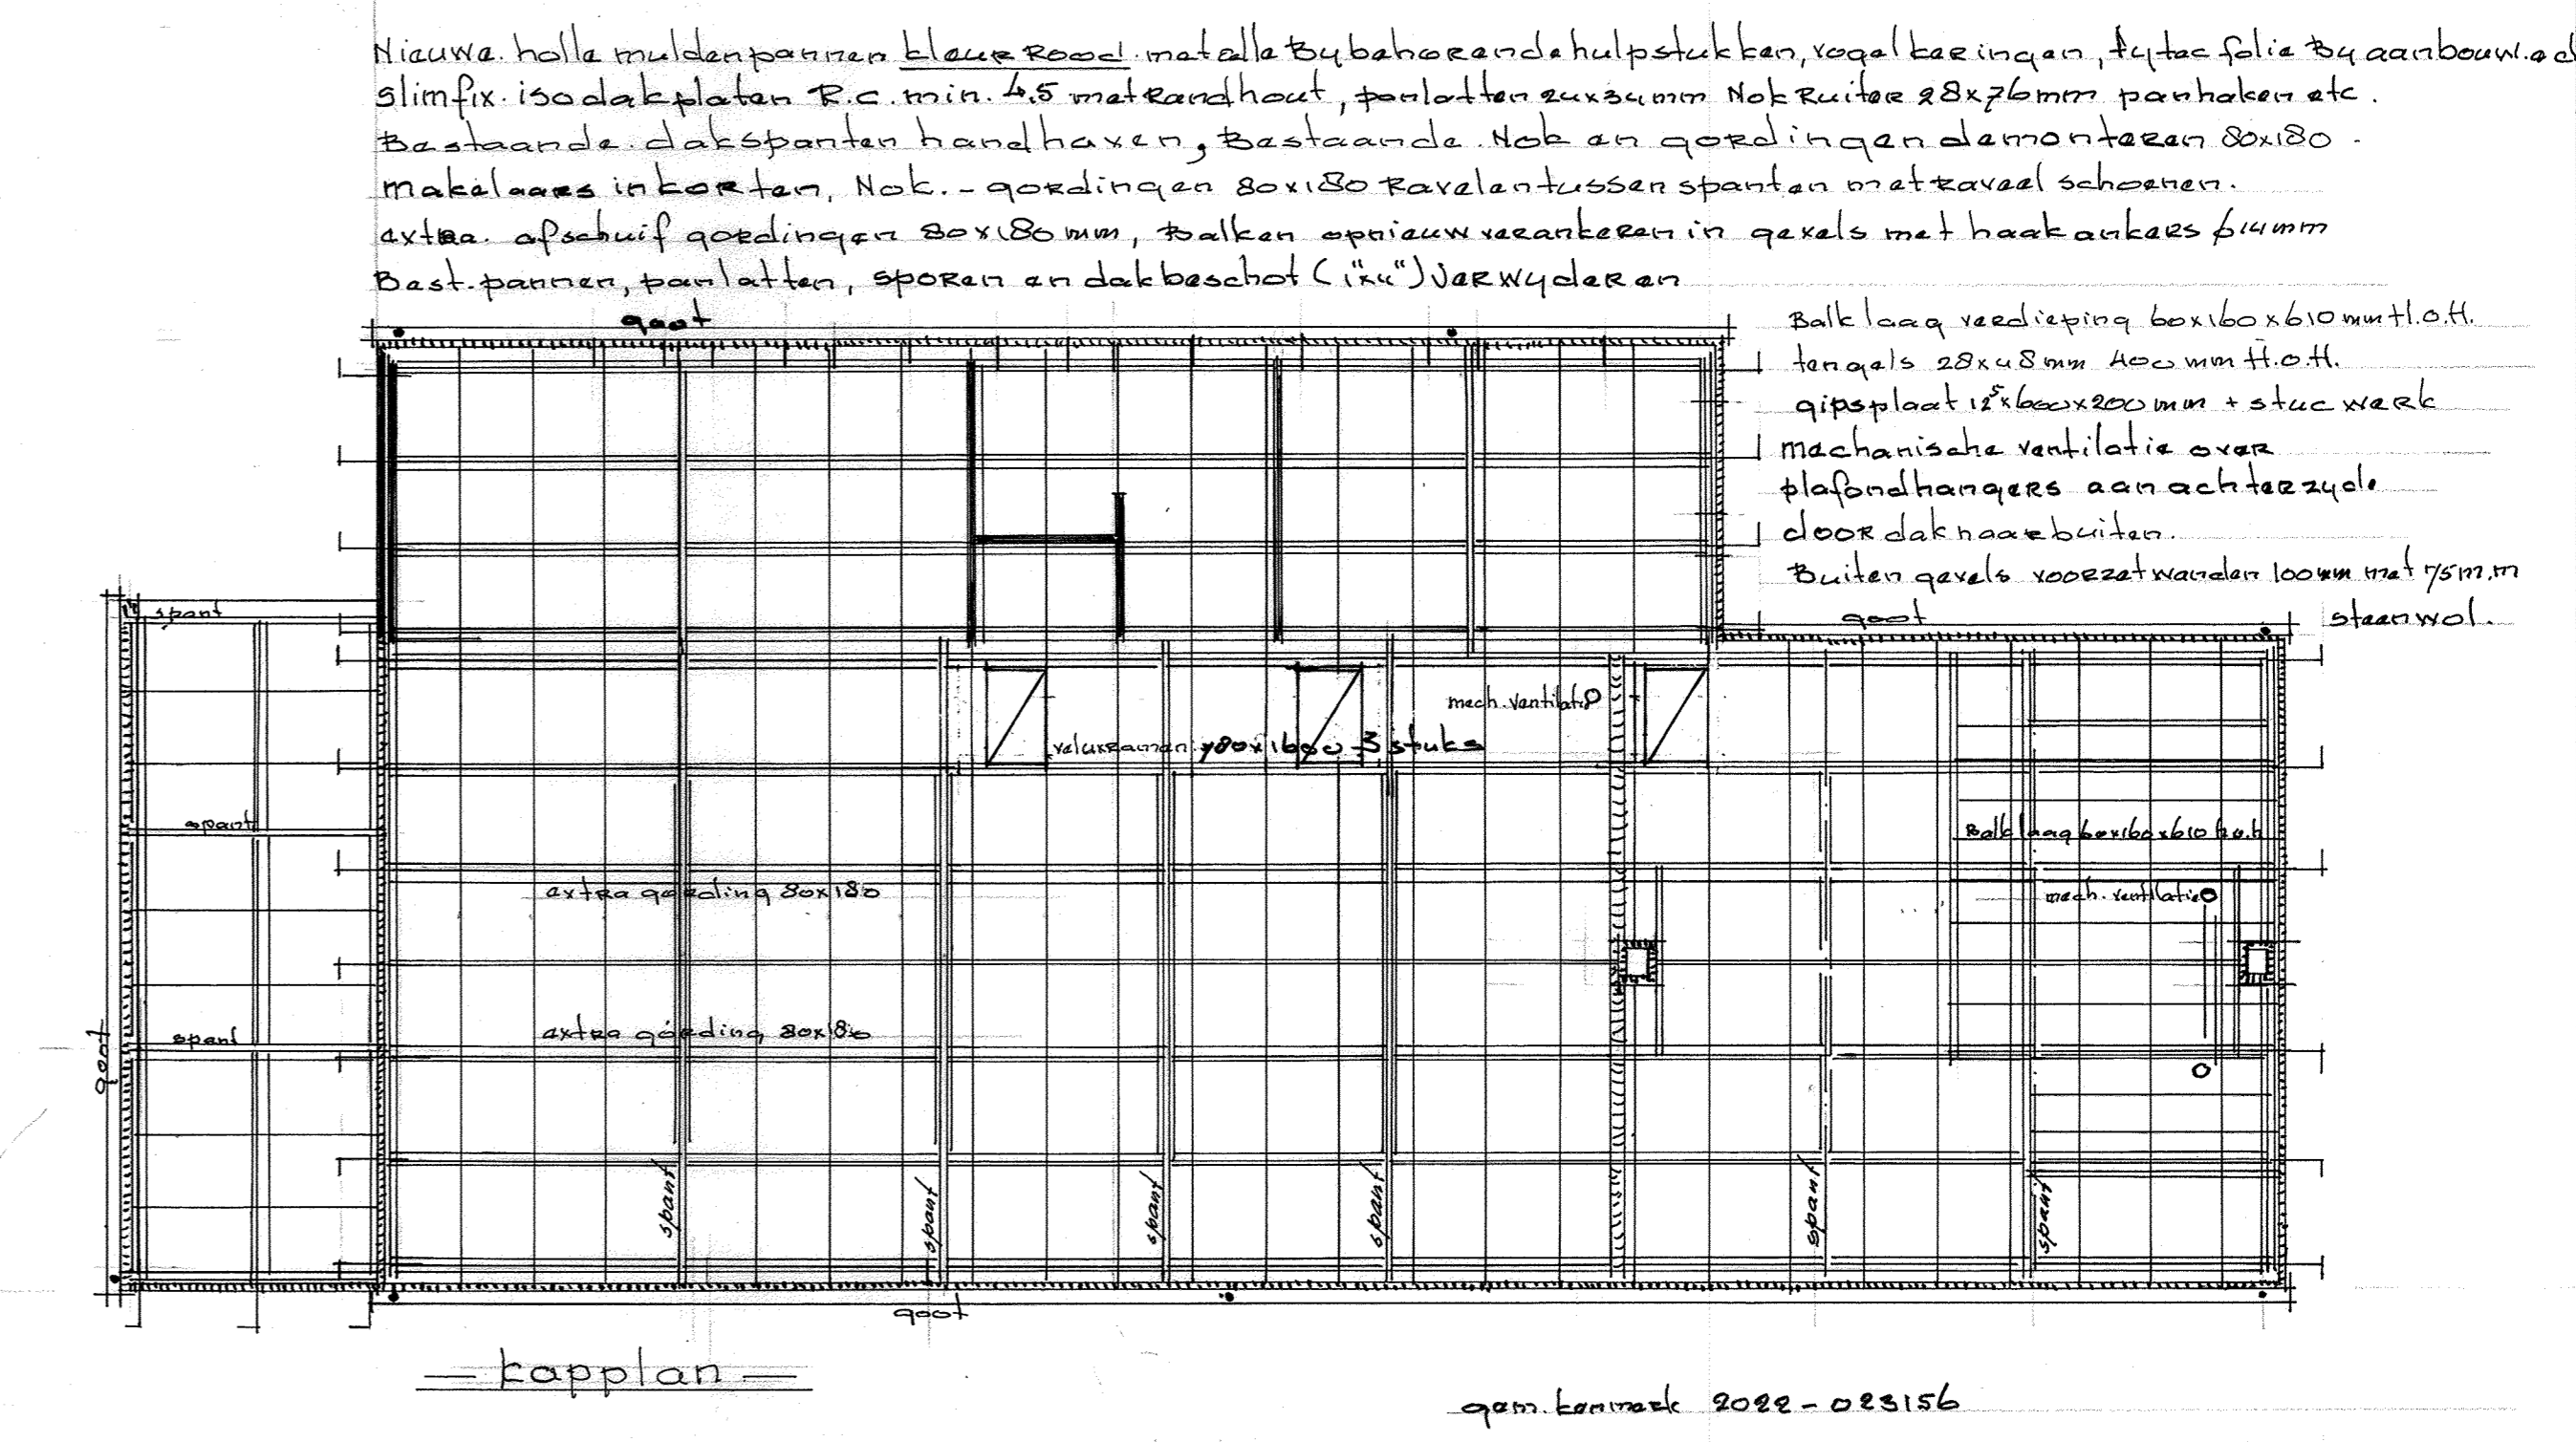 Nieuwe holle muldenpannen kleur Rood met alle Bybehorende hulpstukken, vogelkeringen, tytec folie By aanbouw.ed
Slimfix isodakplaten R.c. min. 4,5 met Randhout, panlatten 24x34mm Nok Ruiter 28x76mm panhaken etc.
Bestaande dakspanten handhaven, Bestaande Nok en gordingen demonteren 80x180
makelaars inkorten, Nok.- gordingen 80x180 Ravelen tussen spanten met raveel schoenen.
extra afschuif gordingen 80x180mm, Balken opnieuw verankeren in gevels met haakankers ϕ14mm
Best. pannen, panlatten, sporen en dakbeschot (1"x4") verwyderen
goot
Balklaag verdieping 60x160x610mm H.o.H.
tengels 28x48mm 400mm H.o.H.
gipsplaat 12⁵x600x200mm + stucwerk
mechanische ventilatie over
plafondhangers aan achterzyde
door dak naar buiten.
Buiten gevels voorzetwanden 100mm met 75m.m
steenwol.
goot
spant
mech. ventilatie
veluxramen 780x1600 3 stuks
spant
Balklaag 60x160x610 h.o.h
extra gording 80x180
mech. ventilatie
extra gording 80x180
spant
goot
spant
spant
spant
spant
spant
spant
goot
kapplan
gem. kenmerk 2022-023156